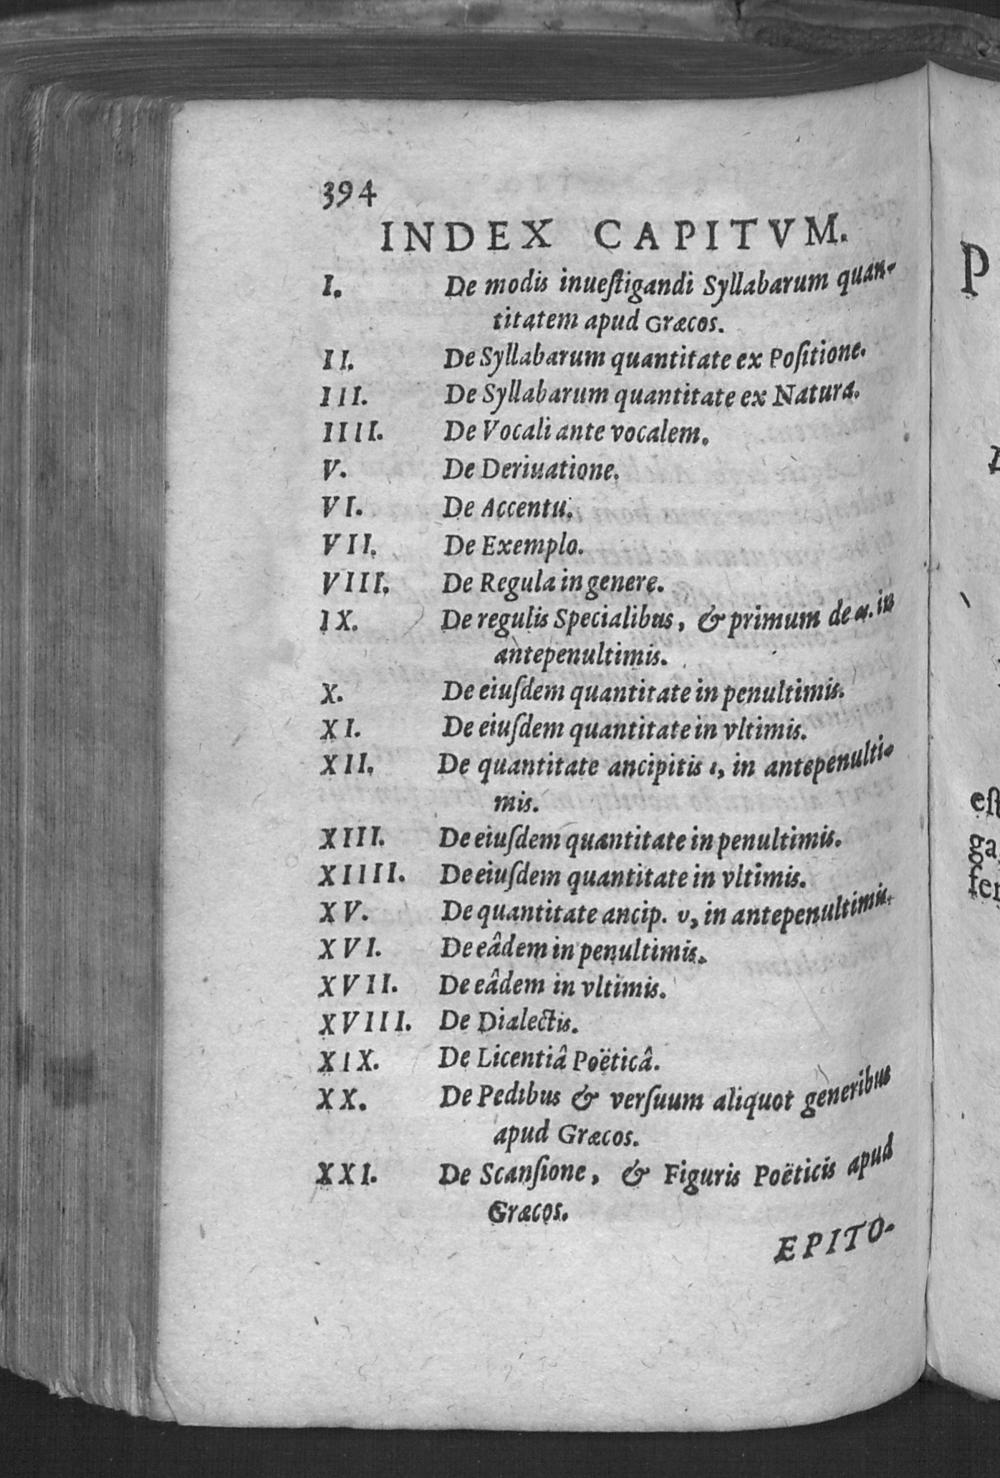 394
INDEX CAPITVM.
I. De modis inueſtigandi Syllabarum quan-
titatem apud Græcos.
II. De Syllabarum quantitate ex Poſitione.
III. De Syllabarum quantitate ex Natura.
IIII. De Vocali ante vocalem.
V. De Deriuatione.
VI. De Accentu.
VII. De Exemplo.
VIII. De Regula in genere.
IX. De regulis Specialibus, & primum de α. in
antepenultimis.
X. De eiuſdem quantitate in penultimis.
XI. De eiuſdem quantitate in vltimis.
XII. De quantitate ancipitis ι, in antepenulti-
mis.
XIII. De eiuſdem quantitate in penultimis.
XIIII. De eiuſdem quantitate in vltimis.
XV. De quantitate ancip. υ, in antepenultimis.
XVI. De eâdem in penultimis.
XVII. De eâdem in vltimis.
XVIII. De Dialectis.
XIX. De Licentiâ Poëticâ.
XX. De Pedibus & verſuum aliquot generibus
apud Græcos.
XXI. De Scanſione, & Figuris Poëticis apud
Græcos.
EPITO-
P
eſt
ga
fer